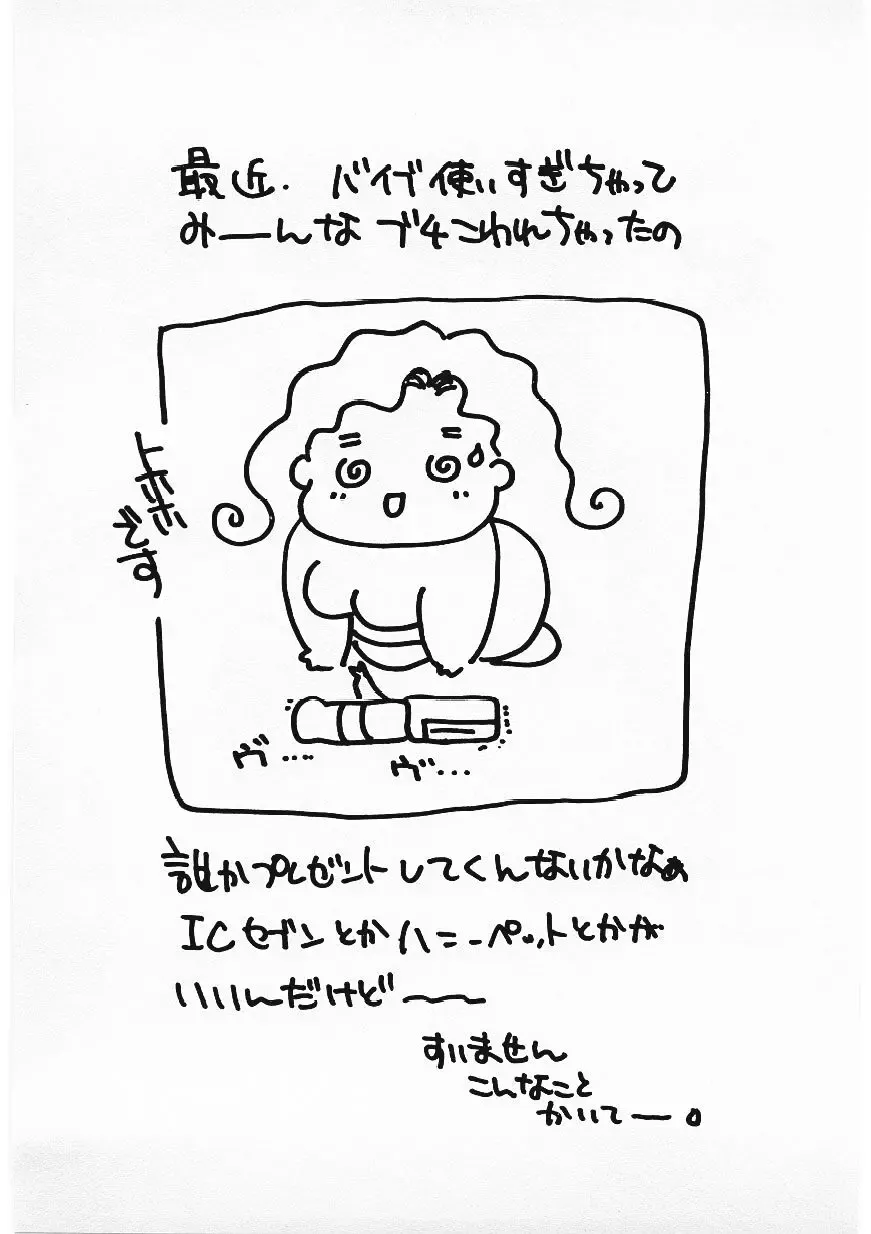 最近．バイブ使いすぎちゃって
み――んなブチこわれちゃったの
です
ヴ…
ヴ…
誰かプレゼントしてくんないかなぁ
ICセブンとかハニーペットとかが
いいんだけど～～
すいません
こんなこと
かいてー。